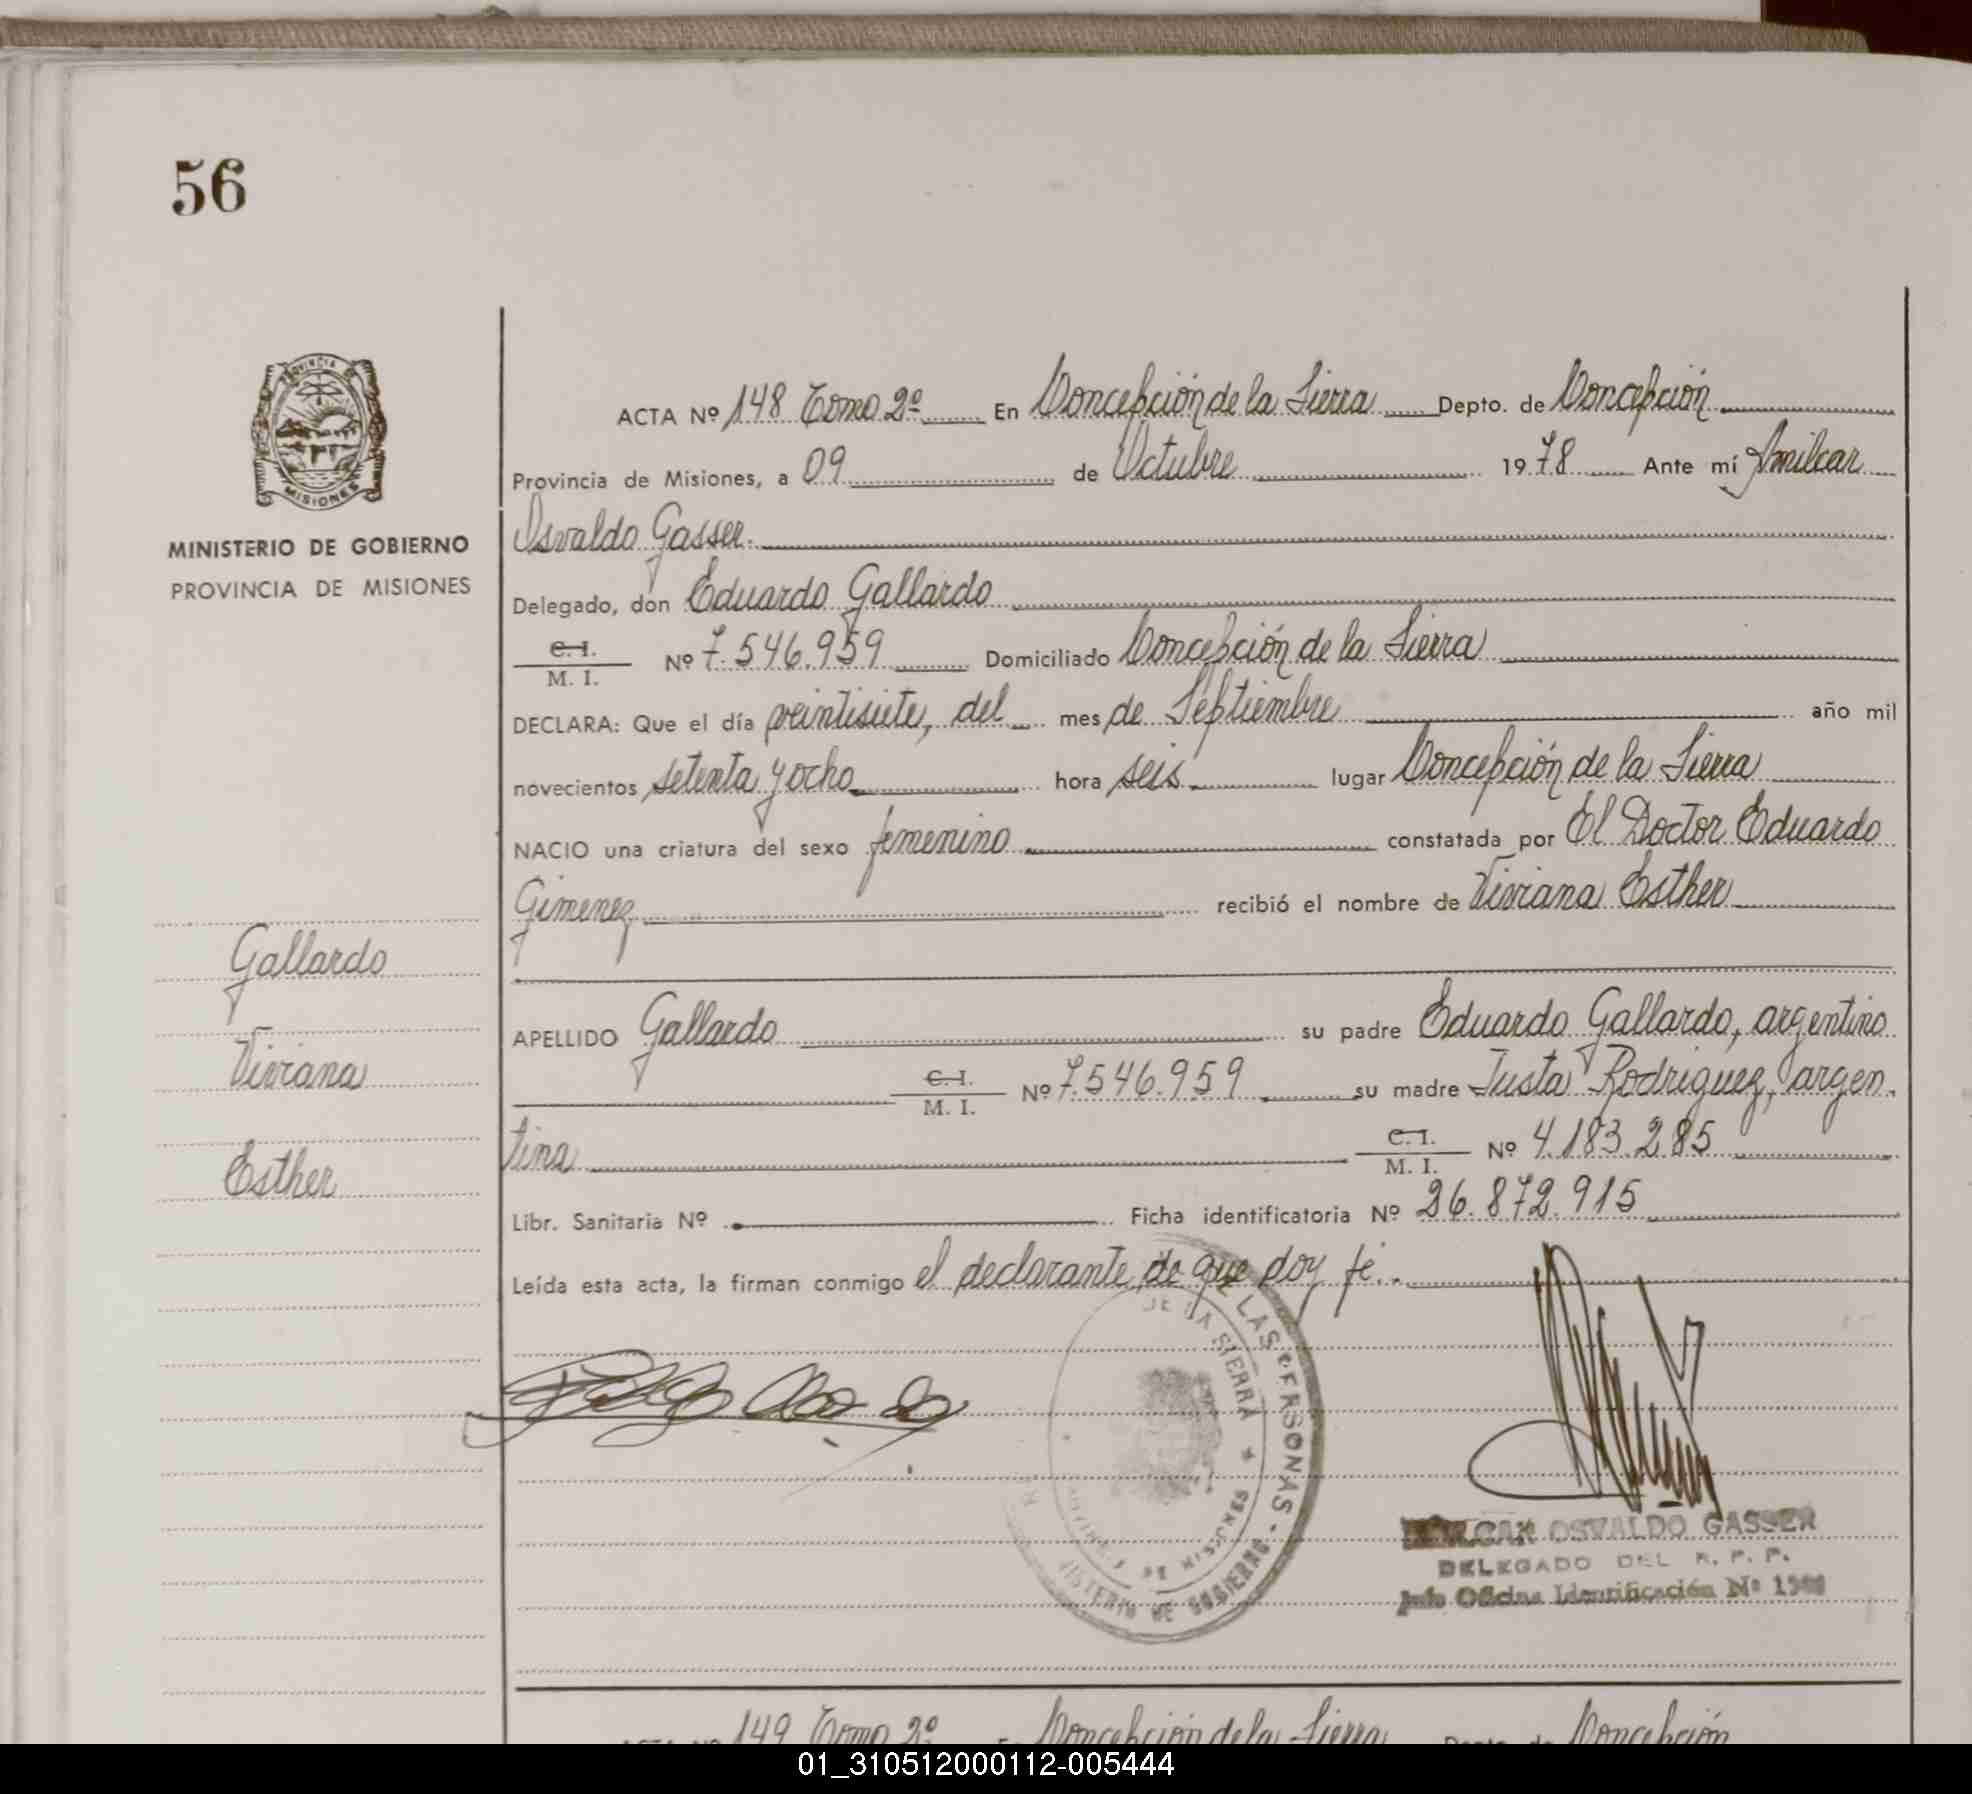 56
PROVINCIA DE
MISIONES
MINISTERIO DE GOBIERNO
PROVINCIA DE MISIONES
Gallardo
Viviana
Esther
ACTA Nº 148 Tomo 2º En Concepción de la Sierra Depto. de Concepción
Provincia de Misiones, a 09 de Octubre 1978 Ante mí Amilcar
Osvaldo Gasser.
Delegado, don Eduardo Gallardo
C. I.
M. I. Nº 7.546.959 Domiciliado Concepción de la Sierra
DECLARA: Que el día veintisiete, del mes de Septiembre año mil
novecientos setenta y ocho hora seis. lugar Concepción de la Sierra
NACIO una criatura del sexo femenino constatada por El Doctor Eduardo
Gimenez recibió el nombre de Viviana Esther
APELLIDO Gallardo su padre Eduardo Gallardo, argentino
C. I.
M. I. Nº 7.546.959 su madre Justa Rodriguez, argen-
tina C. I.
M. I. Nº 4.183.285
Libr. Sanitaria Nº Ficha identificatoria Nº 26.872.915
Leída esta acta, la firman conmigo el declarante, de que doy fe.
DE LAS PERSONAS -
DE LA SIERRA
DE MISIONES
DE GOBIERNO
OSVALDO GASSER
DELEGADO DEL R. P. P.
Jefe Oficina Identificación Nº
149 Tomo 2º En Concepción de la Sierra Depto. de Concepción
01_310512000112-005444